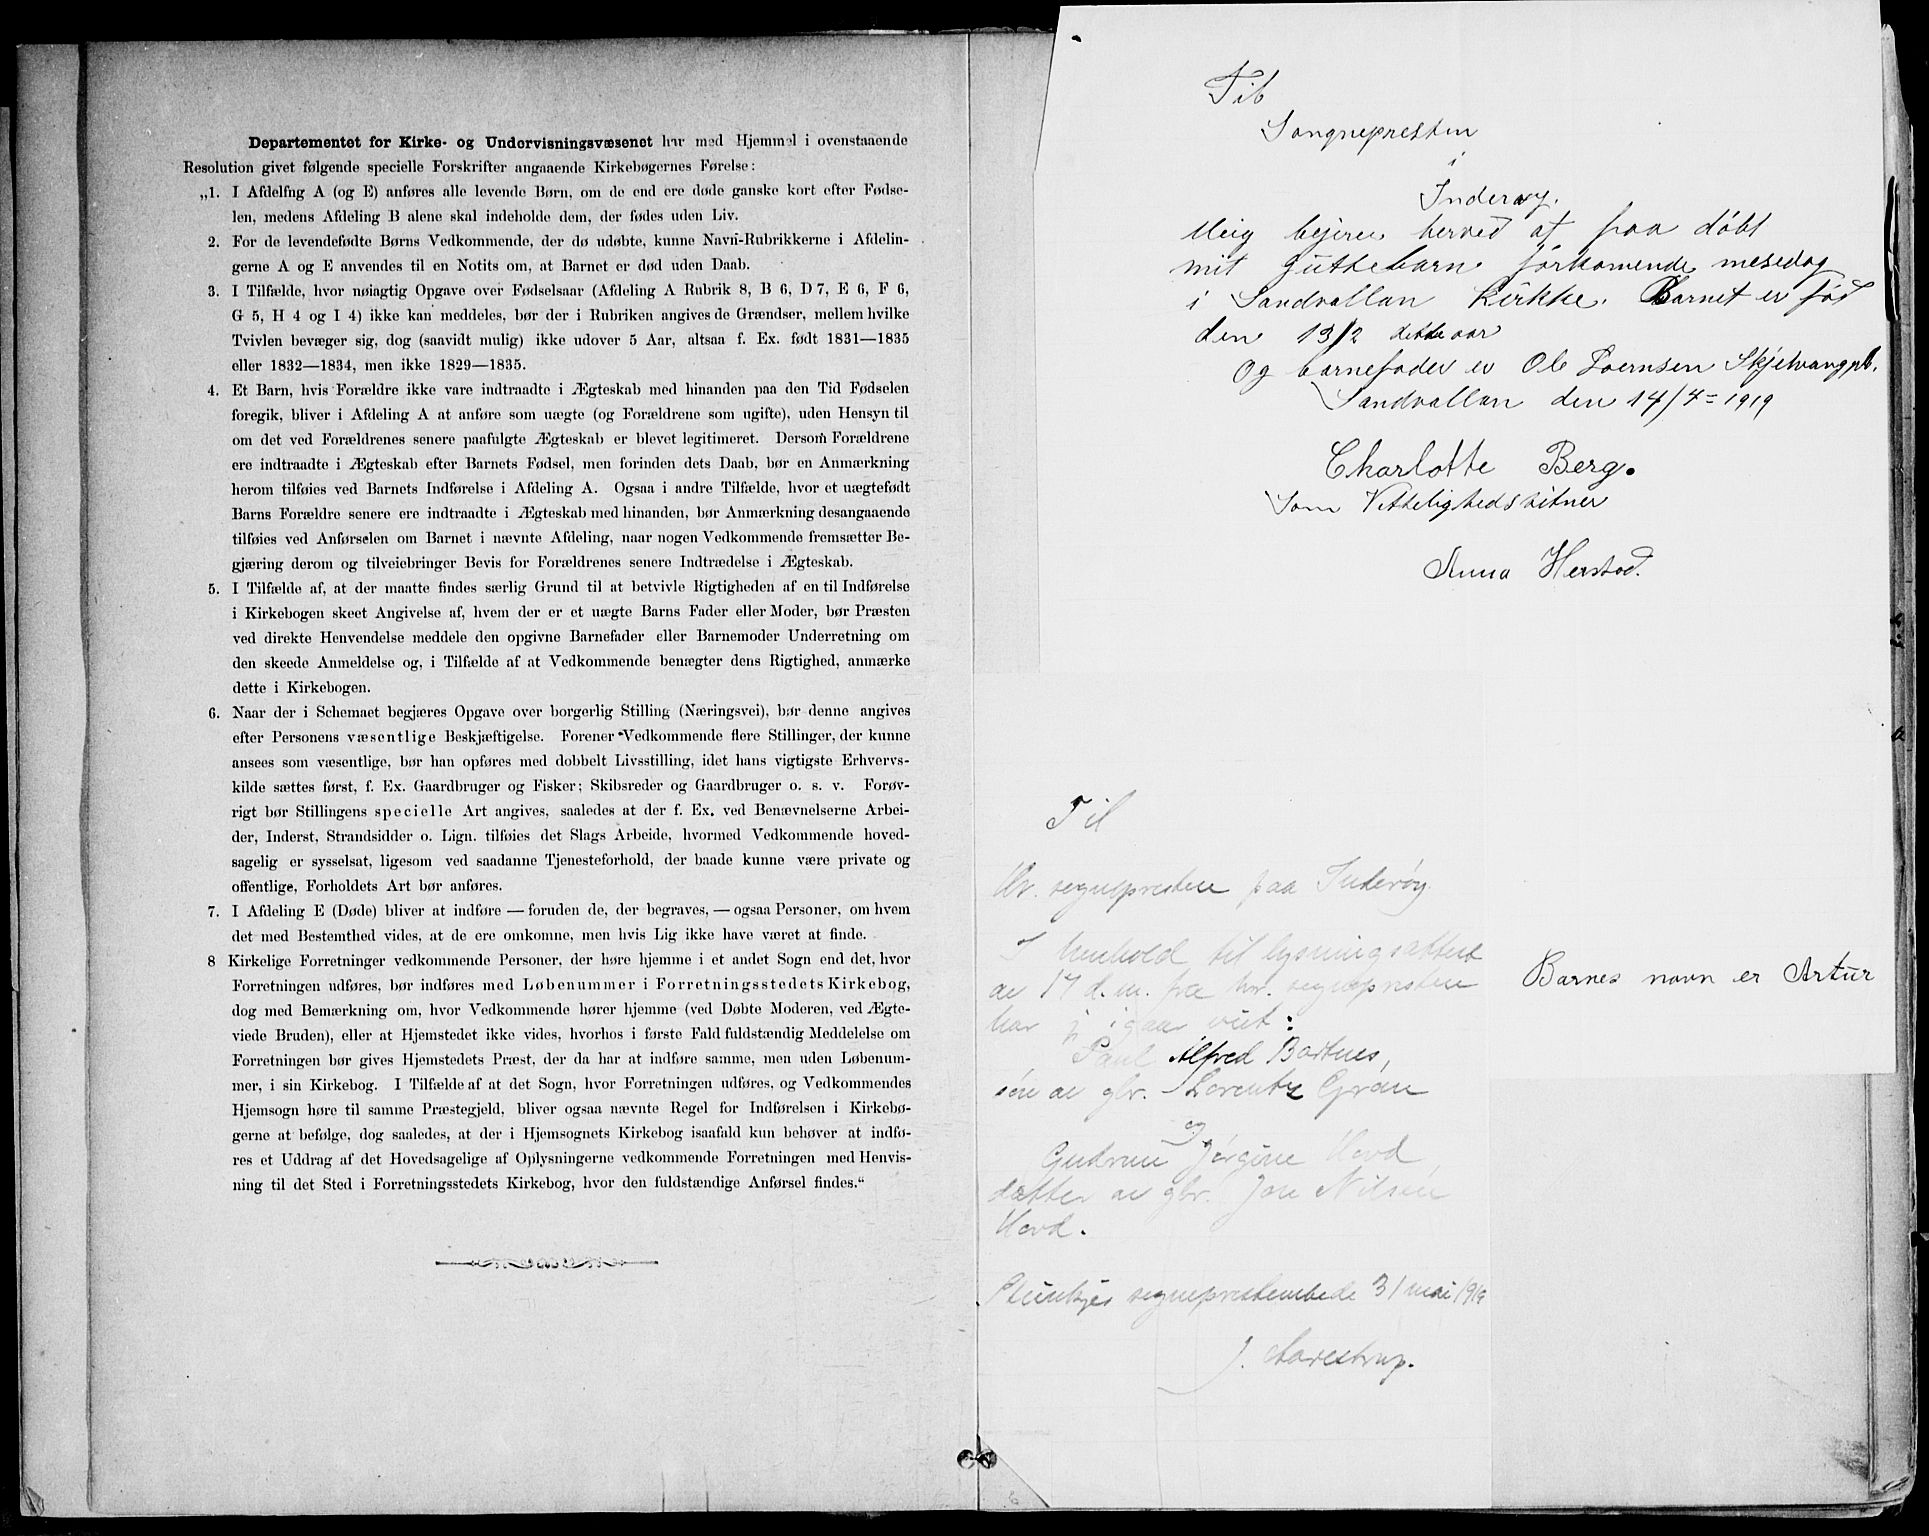 Departementet for Kirke- og Undervisningsvæsenet har med Hjemmel i ovenstaaende
Resolution givet følgende specielle Forskrifter angaaende Kirkebøgernes Førelse:
„1. I Afdelfng A (og E) anføres alle levende Børn, om de end ere døde ganske kort efter Fødse-
len, medens Afdeling B alene skal indeholde dem, der fødes uden Liv.
2. For de levendefødte Børns Vedkommende, der dø udøbte, kunne Navn-Rubrikkerne i Afdelin-
gerne A og E anvendes til en Notits om, at Barnet er død uden Daab.
3. I Tilfælde, hvor nøiagtig Opgave over Fødselsaar (Afdeling A Rubrik 8, B 6, D 7, E 6, F 6,
G 5, H 4 og I 4) ikke kan meddeles, bør der i Rubriken angives de Grændser, mellem hvilke
Tvivlen bevæger sig, dog (saavidt mulig) ikke udover 5 Aar, altsaa f. Ex. født 1831—1835
eller 1832—1834, men ikke 1829—1835.
4. Et Barn, hvis Forældre ikke vare indtraadte i Ægteskab med hinanden paa den Tid Fødselen
foregik, bliver i Afdeling A at anføre som uægte (og Forældrene som ugifte), uden Hensyn til
om det ved Forældrenes senere paafulgte Ægteskab er blevet legitimeret. Dersom Forældrene
ere indtraadte i Ægteskab efter Barnets Fødsel, men forinden dets Daab, bør en Anmærkning
herom tilføies ved Barnets Indførelse i Afdeling A. Ogsaa i andre Tilfælde, hvor et uægtefødt
Barns Forældre senere ere indtraadte i Ægteskab med hinanden, bør Anmærkning desangaaende
tilføies ved Anførselen om Barnet i nævnte Afdeling, naar nogen Vedkommende fremsætter Be-
gjæring derom og tilveiebringer Bevis for Forældrenes senere Indtrædelse i Ægteskab.
5. I Tilfælde af, at der maatte findes særlig Grund til at betvivle Rigtigheden af en til Indførelse
i Kirkebogen skeet Angivelse af, hvem der er et uægte Barns Fader eller Moder, bør Præsten
ved direkte Henvendelse meddele den opgivne Barnefader eller Barnemoder Underretning om
den skeede Anmeldelse og, i Tilfælde af at Vedkommende benægter dens Rigtighed, anmærke
dette i Kirkebogen.
6. Naar der i Schemaet begjæres Opgave over borgerlig Stilling (Næringsvei), bør denne angives
efter Personens væsentlige Beskjæftigelse. Forener Vedkommende flere Stillinger, der kunne
ansees som væsentlige, bør han opføres med dobbelt Livsstilling, idet hans vigtigste Erhvervs-
kilde sættes først, f. Ex. Gaardbruger og Fisker; Skibsreder og Gaardbruger o. s. v. Forøv-
rigt bør Stillingens specielle Art angives, saaledes at der f. Ex. ved Benævnelserne Arbei-
der, Inderst, Strandsidder o. Lign. tilføies det Slags Arbeide, hvormed Vedkommende hoved-
sagelig er sysselsat, ligesom ved saadanne Tjenesteforhold, der baade kunne være private og
offentlige, Forholdets Art bør anføres.
7. I Afdeling E (Døde) bliver at indføre — foruden de, der begraves, — ogsaa Personer, om hvem
det med Bestemthed vides, at de ere omkomne, men hvis Lig ikke have været at finde.
8 Kirkelige Forretninger vedkommende Personer, der høre hjemme i et andet Sogn end det, hvor
Forretningen udføres, bør indføres med Løbenummer i Forretningsstedets Kirkebog,
dog med Bemærkning om, hvor Vedkommende hører hjemme (ved Døbte Moderen, ved Ægte-
viede Bruden), eller at Hjemstedet ikke vides, hvorhos i første Fald fuldstændig Meddelelse om
Forretningen bør gives Hjemstedets Præst, der da har at indføre samme, men uden Løbenum-
mer, i sin Kirkebog. I Tilfælde af at det Sogn, hvor Forretningen udføres, og Vedkommendes
Hjemsogn høre til samme Præstegjeld, bliver ogsaa nævnte Regel for Indførelsen i Kirkebø-
gerne at befølge, dog saaledes, at der i Hjemsognets Kirkebog isaafald kun behøver at indfø-
res et Uddrag af det Hovedsagelige af Oplysningerne vedkommende Forretningen med Henvis-
ning til det Sted i Forretningsstedets Kirkebog, hvor den fuldstændige Anførsel findes.“
Til
Songnepresten
i
Inderøy.
bejerer herved at faa döbt
mit Guttebarn förkomende mesedag
i Sandvollan Kirkke. Barnet er föd
den 13/2 dette aar
Og barnefader er Ole Skjelvangpl.
Sandvollan den 14/4= 1919
Charlotte Berg.
Som Vitteligheds vitner
Anna Herstad.
Til
Hr. sognepresten paa Inderöy.
I henhold til lysningsattest
av 17 d. m. fra hr. sognepresten
har jeg igaar viet:
Paul Alfred Bartnes,
sön av gbr. Lorents Gran
og
Gudrun Jörgine Hovd,
datter av gbr. Jon Nilsen
Hovd.
Stenkjer sogneprestembede 31 mai 1919
J. Aarestrup.
Barnes navn er Artur